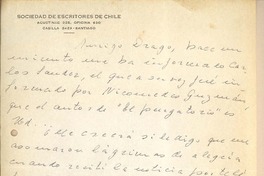 SOCIEDAD DE ESCRITORES DE CHILE
AGUSTINAS 925, OFICINA
CASILLA - SANTIAGO
Amigo Drago, hace un
momento me ha informado Car
los Santos, el que a su vez fué in
formado por Nicomedes Guzmán,
que el autor de "El purgatorio" es
Ud.
¿Me creerá si le digo que me
asomaron lágrimas de alegría
cuando recibí la noticia por telé